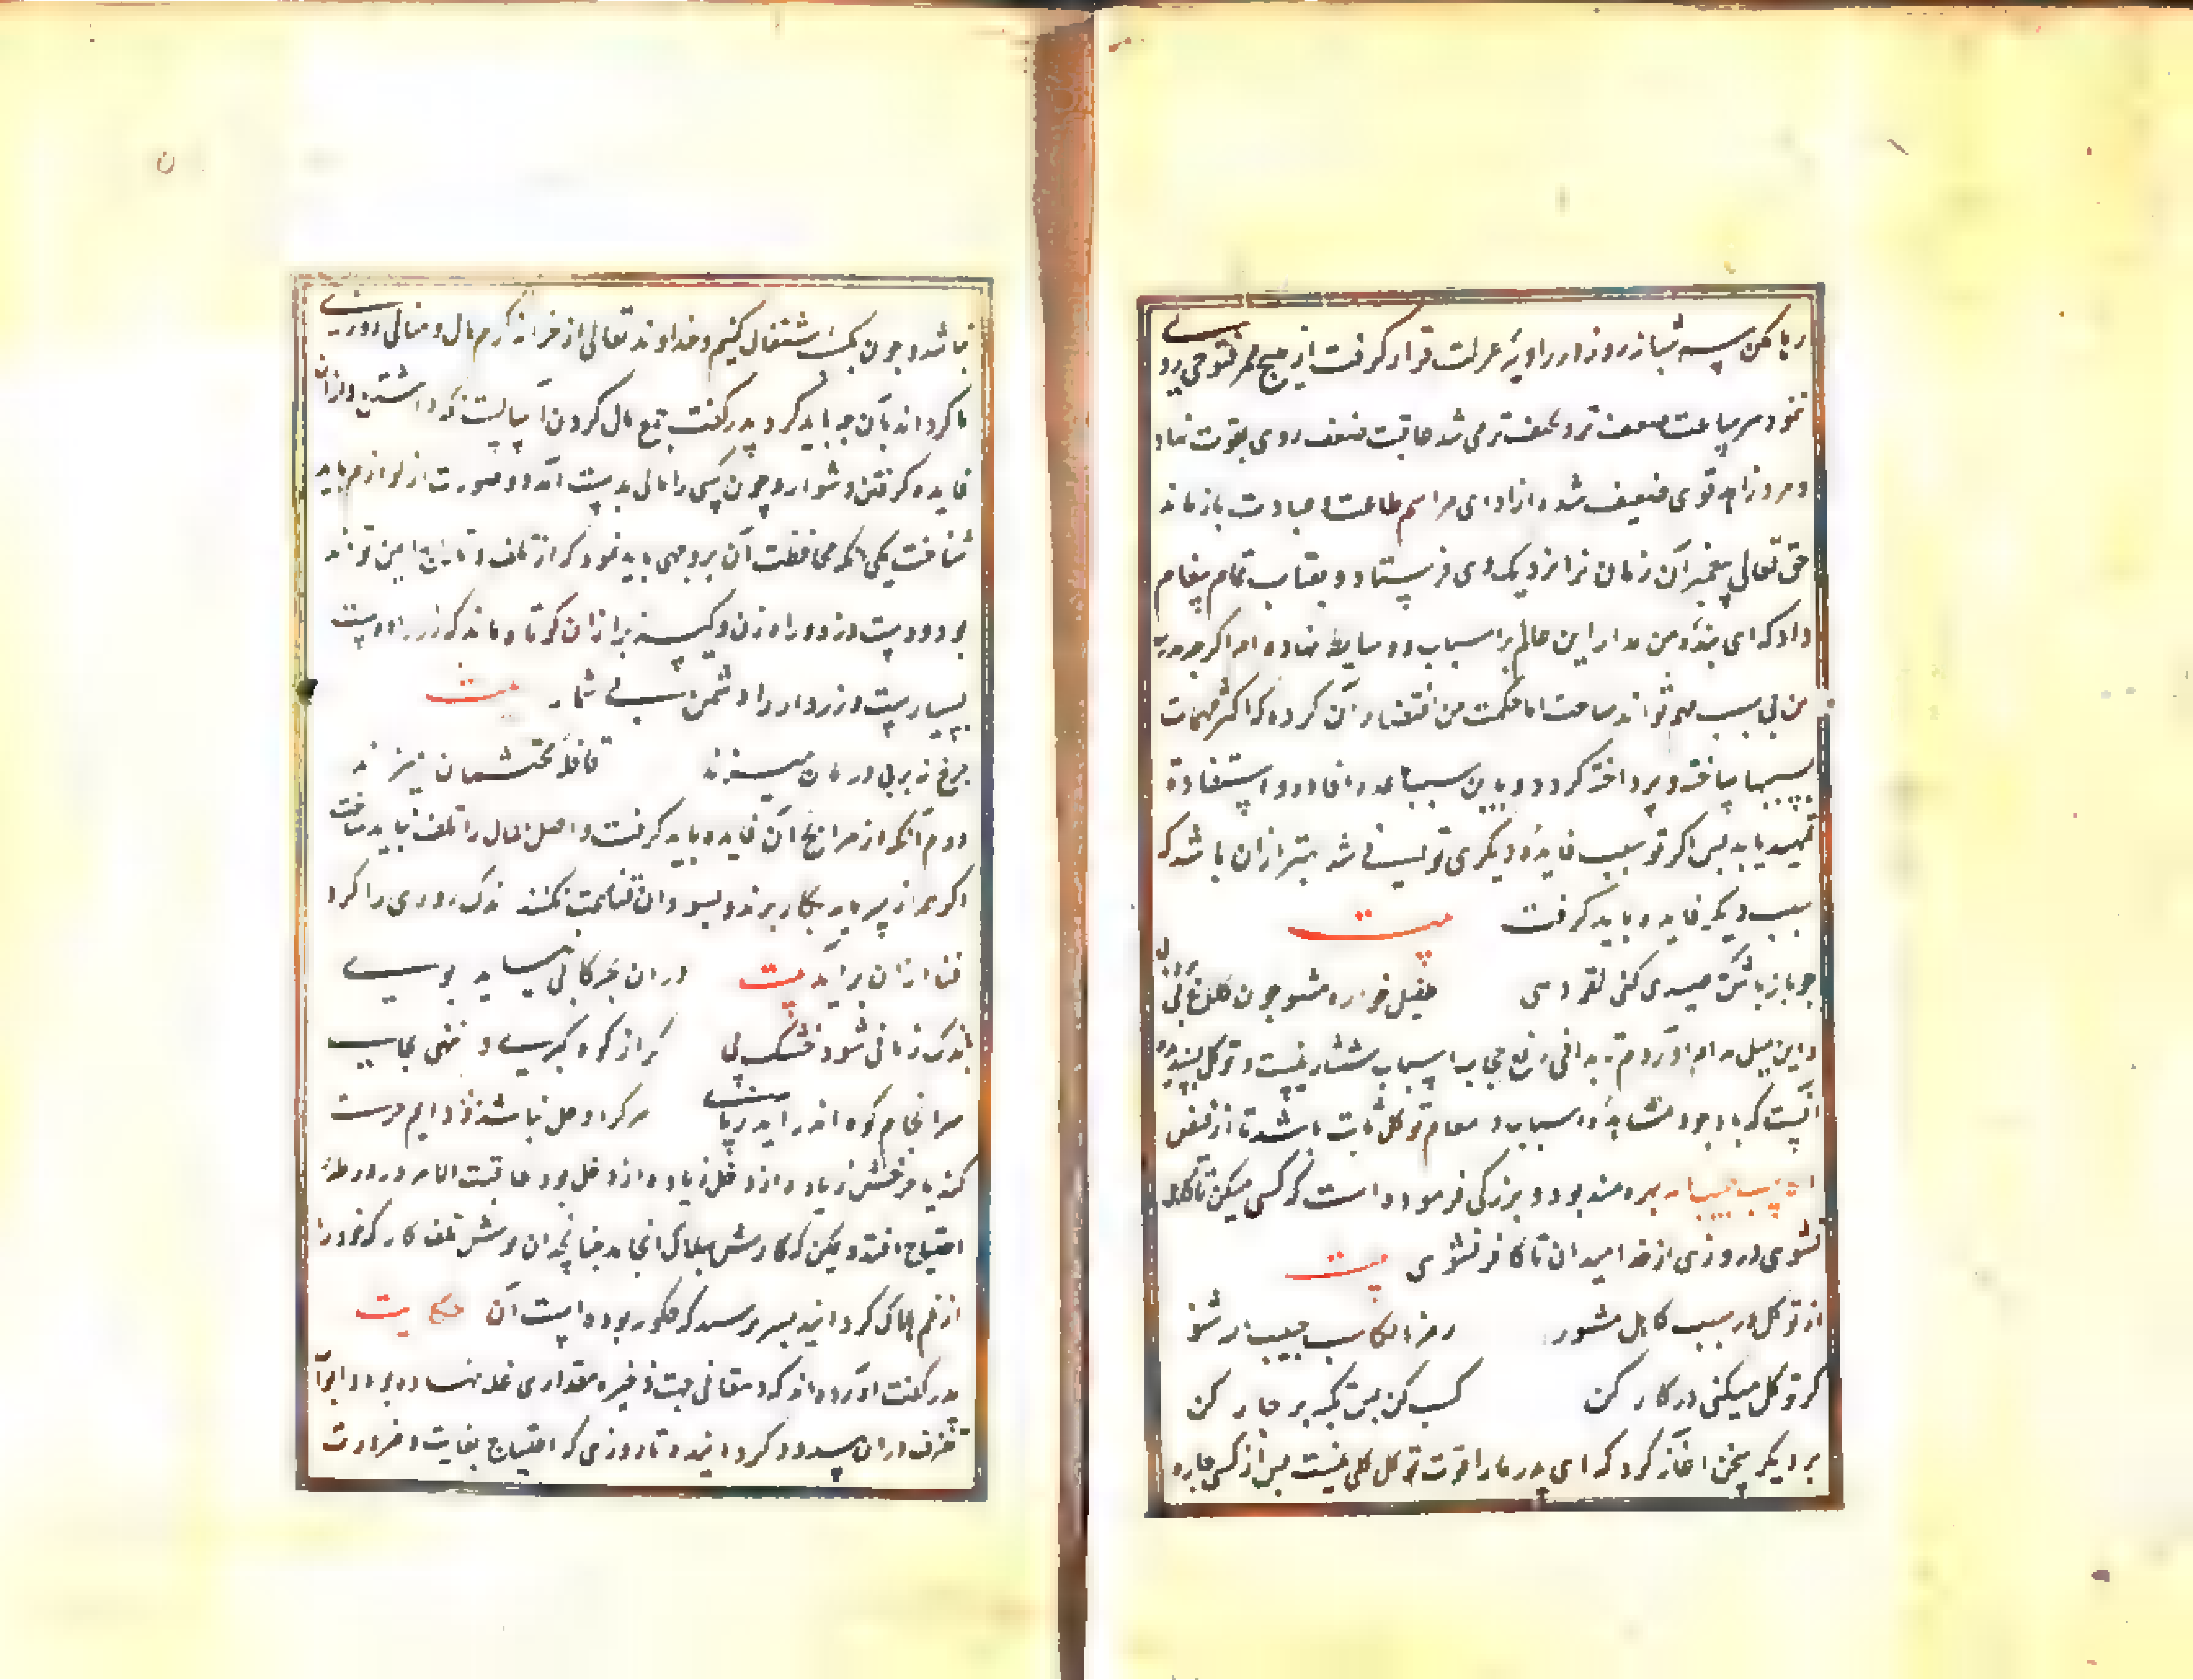 رها کن سه شبانروز در زاویه عزلت قرار گرفت از هیچ ممر فتوحی روی
ننمود هر ساعت ضعیف تر و نحیف تر می شد عاقبت ضعف روی بقوت نهاد
و مرد زاهد قوی ضعیف شده از ادای مراسم طاعت و عبادت بازماند
حق تعالی پیغمبر آن زمان را نزدیک وی فرستاد و بعتاب تمام پیغام
داد که ای بنده من مدار این عالم بر اسباب و وسایط نهاده ام اگرچه قدرت
من بی سبب مهم تواند ساخت اما حکمت من اقتضاء آن کرده که اکثر مهمات
بسببها ساخته و پرداخته گردد و بدین سبب قاعده افاده و استفاده
تمهید یابد پس اگر تو سبب فایده دیگری توانی شد بهتر از آن باشد که
بسبب دیگر فایده باید گرفت بیت
چو باز باش که صیدی کنی لقمه دهی طفیل خواره مشو چون کلاغ بی پر و بال
و این مثل بدان آوردم تا بدانی رفع حجاب اسباب میسر نیست و توکل پسندیده
آنست که با وجود مشاهده اسباب در مقام توکل ثابت باشد تا از فیض
الکاسب حبیب الله بهره مند بود و بزرگی فرموده است که کسب میکن تا کاهل
نشوی و روزی از خدا میدان تا کافر نشوی بیت
از توکل در سبب کاهل مشو رمز الکاسب حبیب الله شنو
گر توکل میکنی در کار کن کسب کن پس تکیه بر جبار کن
برادر دیگر سخن آغاز کرد که ای پدر ما را قوت توکل کلی نیست پس از کسب چاره
نباشد و چون بکسب اشتغال کنیم و خداوند تعالی از خزانه کرم مال و منالی روزی
ما گرداند با آن چه باید کرد پدر گفت جمع مال کردن آسانست و نگه داشتن و از آن
فایده گرفتن دشوار و چون کسی را مالی بدست آید دو صورت از لوازم باید
شناخت یکی آنکه محافظت آن بر وجهی باید نمود که از تلف و تاراج ایمن تواند
بود و دست دزد و راه زن و کیسه بر از آن کوتاه ماند که زر را دوست
بسیار است و زردار را دشمن بی شمار بیت
چرخ نه بر بی درمان میزند قافله محتشمان میزند
دوم آنکه از مرابح آن فایده باید گرفت و اصل مال را تلف نباید ساخت
اگر همه از سرمایه بکار برند و بسود آن قناعت نکنند اندک روزی را گرد
فنا از آن برآید بیت هر آن بحر کآبی نیاید بوی
باندک زمانی شود خشک پی گر از کوه گیری و ننهی بجای
سرانجام کوه اندر آید ز پای هر که را دخل نباشد و دایم خرج
کند یا خرجش زیاده از دخل بود عاقبت الامر در ورطه
احتیاج افتد و یمکن که کارش بهلاکی انجامد چنانچه آن موش تلف کار که خود را
از غم هلاک گردانید پسر پرسید که چگونه بوده است آن حکایت
پدر گفت آورده اند که دهقانی جهت ذخیره مقداری غله نهاده بود و ابواب
تصرف در آن مسدود گردانیده تا روزی که احتیاج بغایت و ضرورت